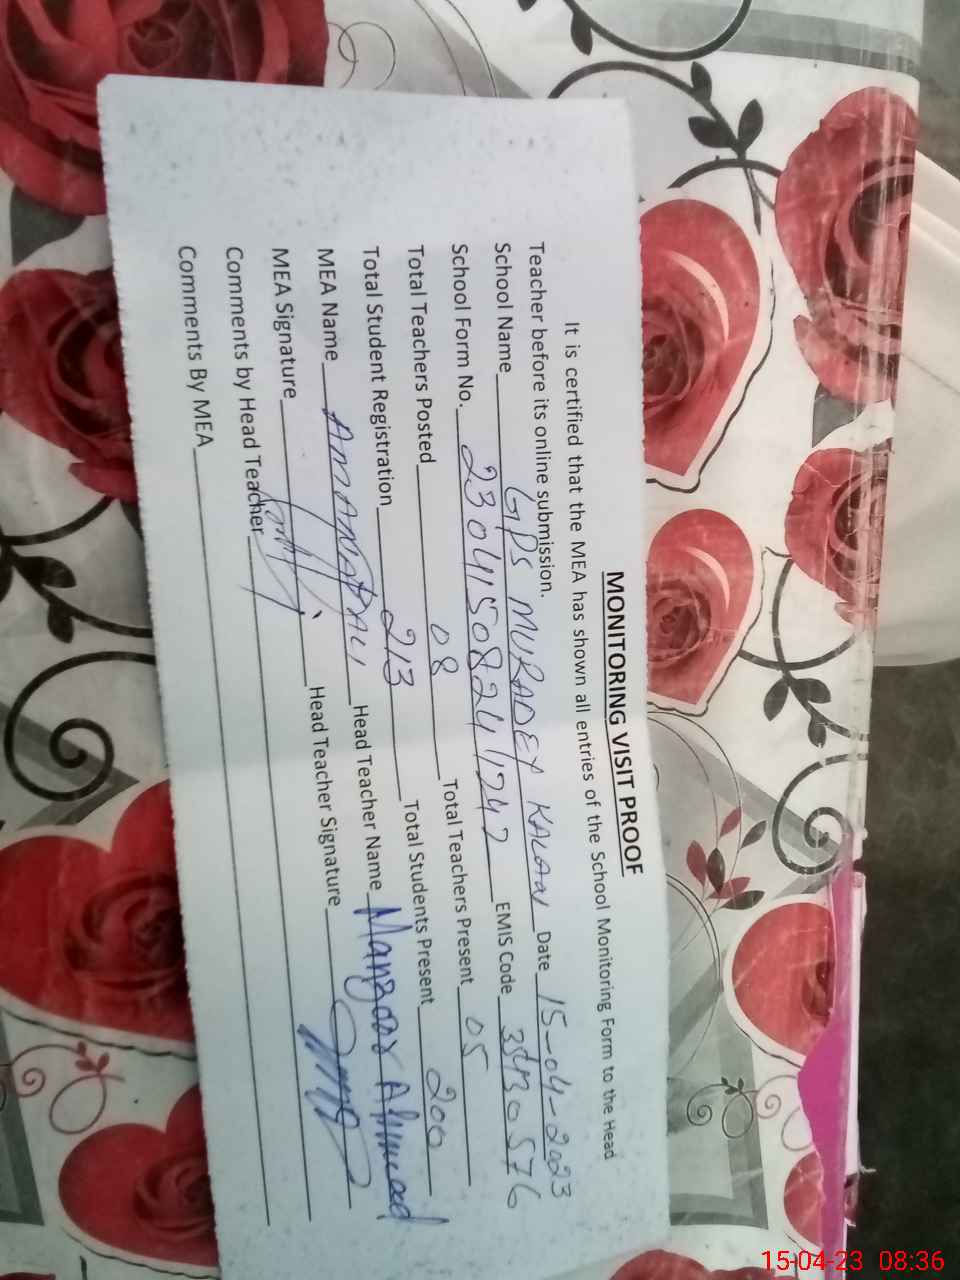 MONITORING VISIT PROOF
It is certified that the MEA has shown all entries of the School Monitoring Form to the Head
Teacher before its online submission.
School Name GPS MURADEY KALAN Date 15-04-2023
School Form No. 230415082411242 EMIS Code
Total Teachers Posted 08 Total Teachers Present 05
Total Student Registration 213 Total Students Present 200
MEA Name AMANAT ALI Head Teacher Name Manzoor Ahmed
MEA Signature Head Teacher Signature
Comments by Head Teacher
Comments By MEA
15-04-23 08:36